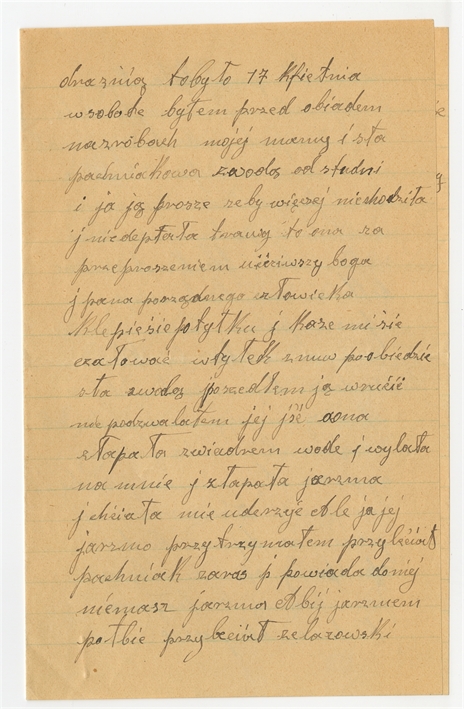 draznią tobyło 17 kfietnia
wsobote byłem przed obiadem
nazróbach mojej mamy i szła
pachniakowa zwodą od studni
i ja ją prosze zeby więzej niechodziła
j niedeptała trawy to ona za
przeproszeniem uściwszy boga
j pana porządnego człowieka
klepiesie połytku j kaze mi sie
czałować wtyłek znuw poobiedzie
szła zwodą poszedłem ją wrucić
niepodzwalałem jej jść aona
złapała zwiadrem wode j wylała
na mnie j złapała jarzma
j chciała mie uderzyć Ale ja jej
jarzmo przytrzymałem przyleciał
pachniak zaras j powiada doniej
niemasz jarzma Abij jarzmem
połbie przyleciał zelazowski